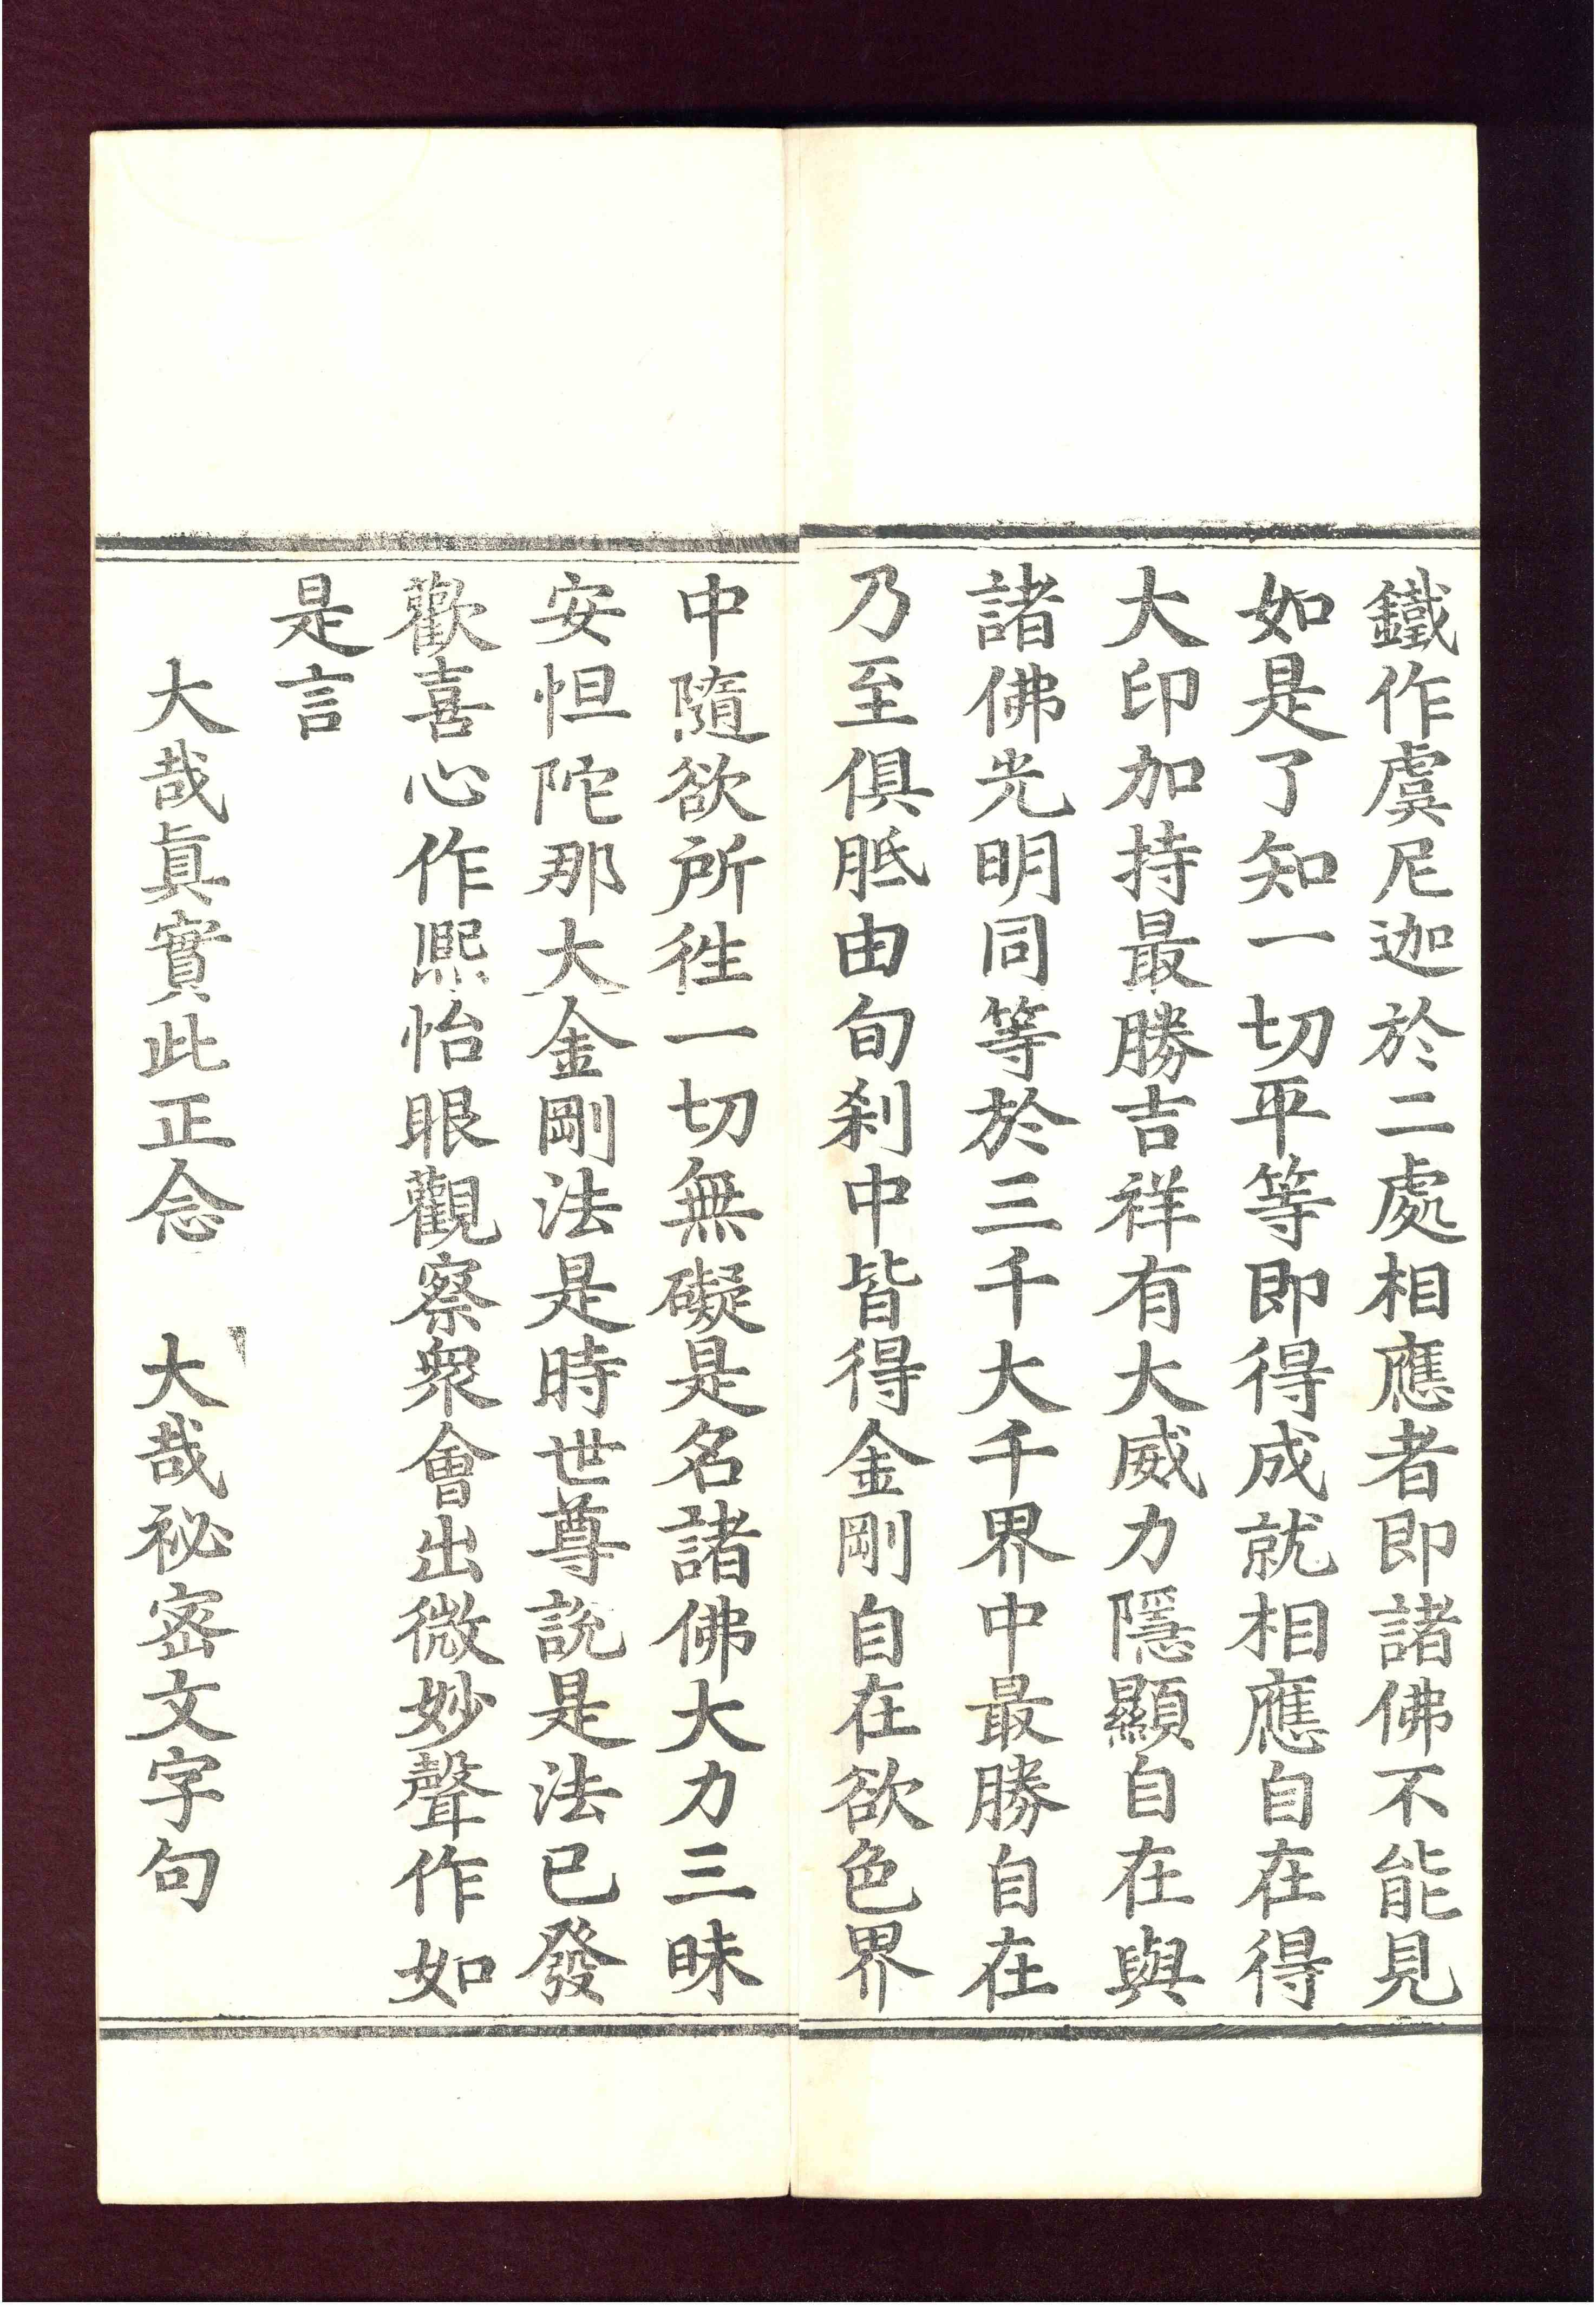 鐵作虞尼迦於二處相應者即諸佛不能見
如是了知一切平等即得成就相應自在得
大印加持最勝吉祥有大威力隱顯自在與
諸佛光明同等於三千大千界中最勝自在
乃至俱胝由旬刹中皆得金剛自在欲色界
中隨欲所徃一切無礙是名諸佛大力三昧
安怛陀那大金剛法是時世尊說是法已發
歡喜心作熈怡眼觀察衆會出微妙聲作如
是言
大哉眞實此正念　大哉祕密文字句